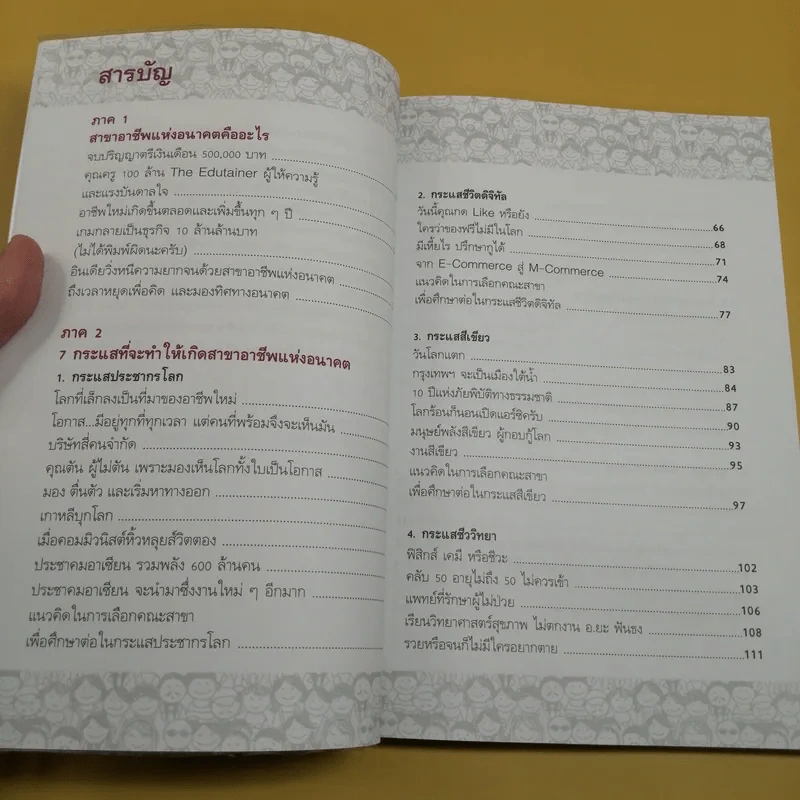 สารบัญ
ภาค 1
สาขาอาชีพแห่งอนาคตคืออะไร
จบปริญญาตรีเงินเดือน 500,000 บาท
คุณครู 100 ล้าน The Edutainer ผู้ให้ความรู้
และแรงบันดาลใจ
อาชีพใหม่เกิดขึ้นตลอดและเพิ่มขึ้นทุก ๆ ปี
เกมกลายเป็นธุรกิจ 10 ล้านล้านบาท
(ไม่ได้พิมพ์ผิดนะครับ)
อินเดียวิ่งหนีความยากจนด้วยสาขาอาชีพแห่งอนาคต
ถึงเวลาหยุดเพื่อคิด และมองทิศทางอนาคต
ภาค 2
7 กระแสที่จะทำให้เกิดสาขาอาชีพแห่งอนาคต
1. กระแสประชากรโลก
โลกที่เล็กลงเป็นที่มาของอาชีพใหม่
โอกาส...มีอยู่ทุกที่ทุกเวลา แต่คนที่พร้อมจึงจะเห็นมัน
บริษัทสี่คนจำกัด
คุณตัน ผู้ไม่ตัน เพราะมองเห็นโลกทั้งใบเป็นโอกาส
มอง ตื่นตัว และเริ่มหาทางออก
เกาหลีบุกโลก
เมื่อคอมมิวนิสต์หิ้วหลุยส์วิตตอง
ประชาคมอาเซียน รวมพลัง 600 ล้านคน
ประชาคมอาเซียน จะนำมาซึ่งงานใหม่ ๆ อีกมาก
แนวคิดในการเลือกคณะสาขา
เพื่อศึกษาต่อในกระแสประชากรโลก
2. กระแสชีวิตดิจิทัล
วันนี้คุณกด Like หรือยัง 66
ใครว่าของฟรีไม่มีในโลก 68
มีเหี้ยไร ปรึกษากูได้ 71
จาก E-Commerce สู่ M-Commerce 74
แนวคิดในการเลือกคณะสาขา
เพื่อศึกษาต่อในกระแสชีวิตดิจิทัล 77
3. กระแสสีเขียว
วันโลกแตก 83
กรุงเทพฯ จะเป็นเมืองใต้น้ำ 84
10 ปีแห่งภัยพิบัติทางธรรมชาติ 87
โลกร้อนก็นอนเปิดแอร์ซิครับ 90
มนุษย์พลังสีเขียว ผู้กอบกู้โลก 93
งานสีเขียว 95
แนวคิดในการเลือกคณะสาขา
เพื่อศึกษาต่อในกระแสสีเขียว 97
4. กระแสชีววิทยา
ฟิสิกส์ เคมี หรือชีวะ 102
คลับ 50 อายุไม่ถึง 50 ไม่ควรเข้า 103
แพทย์ที่รักษาผู้ไม่ป่วย 106
เรียนวิทยาศาสตร์สุขภาพ ไม่ตกงาน อ.ยะ ฟันธง 108
รวยหรือจนก็ไม่มีใครอยากตาย 111